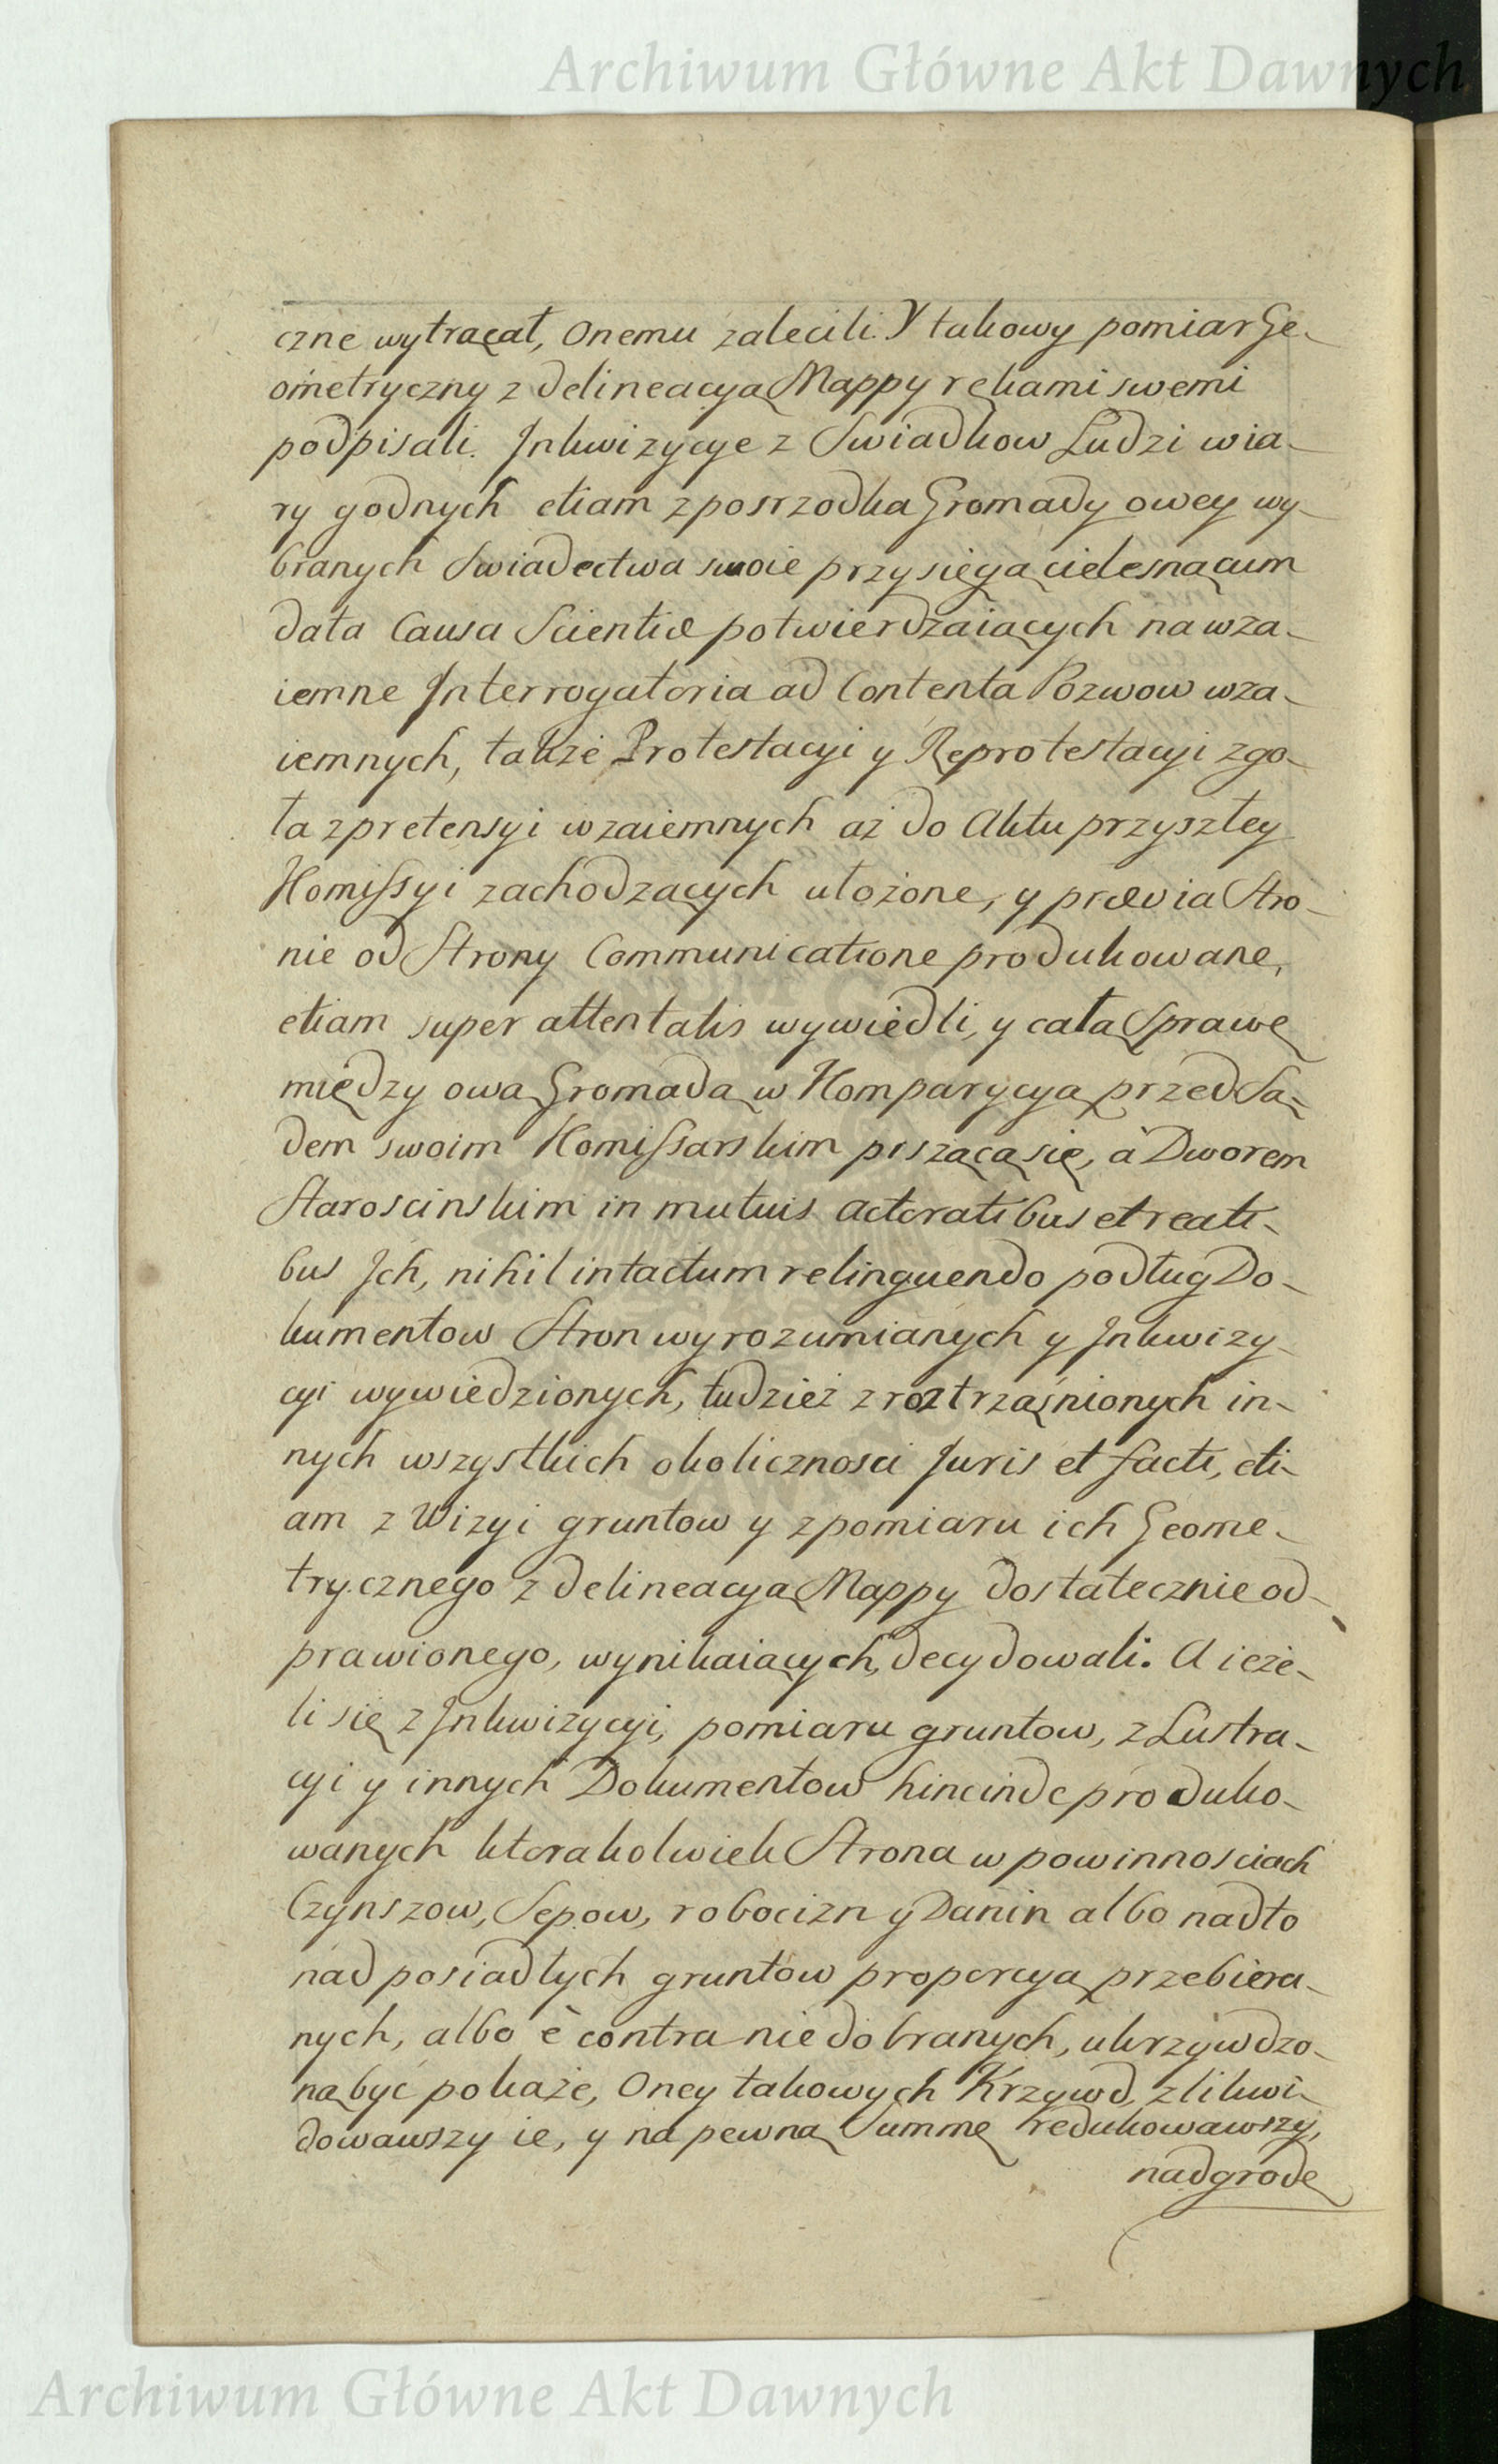 Archiwum Główne Akt Dawnych
czne wytrącał, Onemu zalecili. Y takowy pomiar Ge-
ometryczny z delineacyą Mappy rękami swemi
podpisali. Inkwizycye z Swiadkow Ludzi wia-
ry godnych etiam z posrzodka Gromady owey wy-
branych Swiadectwa swoie przysięgą cielesną cum
data Causa Scientiæ potwierdzaiących na wza-
iemne Interrogatoria ad Contenta Pozwow wza-
iemnych, także Protestacyi y Reprotestacyi zgo-
ła z pretensyi wzaiemnych aż do Aktu przyszłey
Komissyi zachodzących ułożone, y prævia Stro-
nie od Strony Communicatione produkowane,
etiam super attentatis wywiedli, y całą Sprawę
między ową Gromadą w Komparycyą przed Są-
dem swoim Komissarskim piszącą się, á Dworem
Staroscinskim in mutuis actoratibus et reati-
bus Ich, nihil intactum relinquendo podług Do-
kumentow Stron wyrozumianych y Inkwizy-
cyi wywiedzionych, tudzież z roztrząśnionych in-
nych wszystkich okolicznosci Juris et facti, eti-
am z Wizyi gruntow y z pomiaru ich Geome-
trycznego z delineacyą Mappy dostatecznie od-
prawionego, wynikaiących, decydowali. A ieże-
li się z Inkwizycyi, pomiaru gruntow, z Lustra-
cyi y innych Dokumentow hincinde produko-
wanych ktorakolwiek Strona w powinnosciach
Czynszow, Sepow, robocizn y Danin albo nadto
nad posiadłych gruntow proporcyą przebiera-
nych, albo è contra niedobranych, ukrzywdzo-
ną być pokaże, Oney takowych Krzywd, zlikwi-
dowawszy ie, y na pewną Summę redukowawszy,
nadgrodę
Archiwum Główne Akt Dawnych